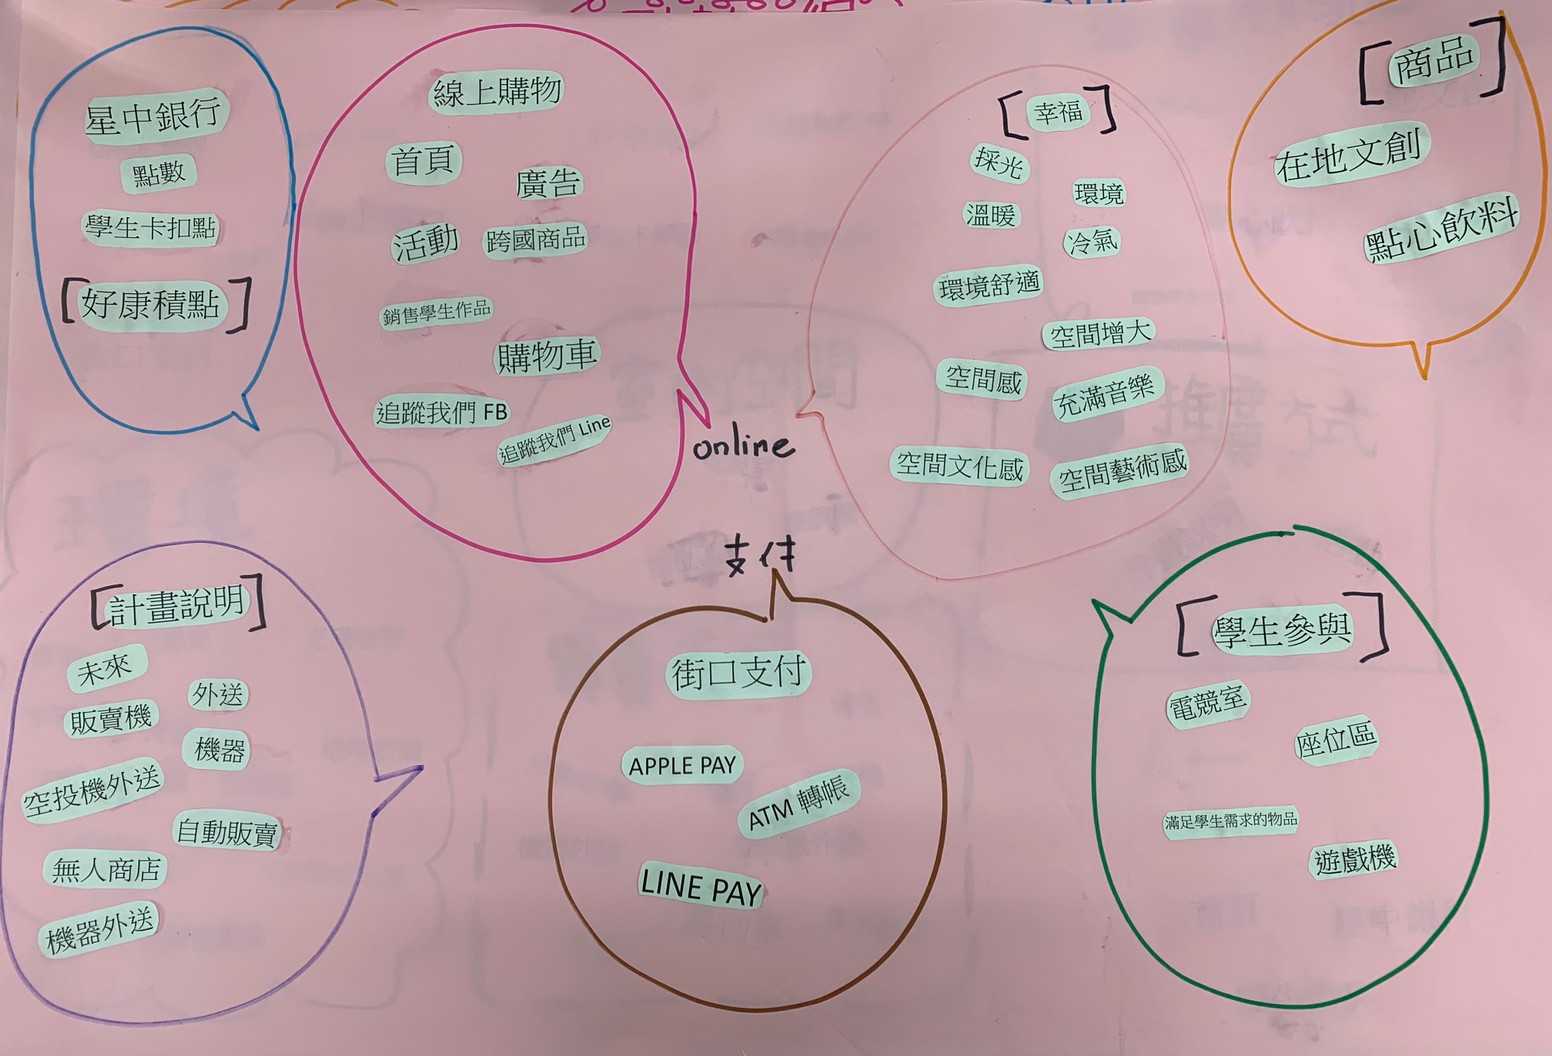 星中銀行
點數
學生卡扣點
[好康積點]
線上購物
首頁
廣告
活動
跨國商品
銷售學生作品
購物車
追蹤我們 FB
追蹤我們 Line
online
[幸福]
採光
環境
溫暖
冷氣
環境舒適
空間增大
空間感
充滿音樂
空間文化感
空間藝術感
[商品]
在地文創
點心飲料
[計畫說明]
未來
外送
販賣機
機器
空投機外送
自動販賣
無人商店
機器外送
支付
街口支付
APPLE PAY
ATM 轉帳
LINE PAY
[學生參與]
電競室
座位區
滿足學生需求的物品
遊戲機